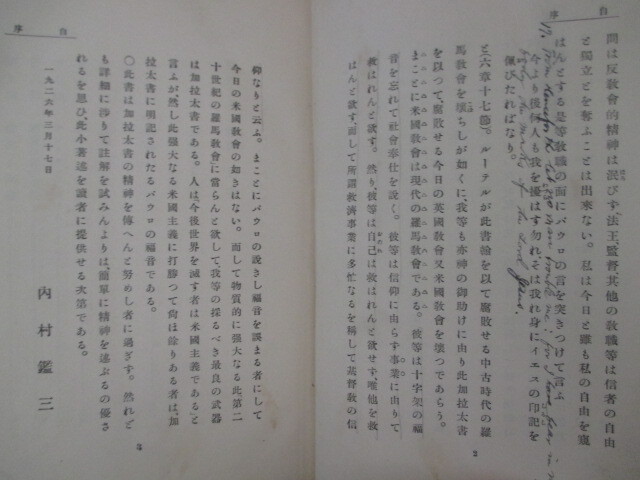 自序
間は反教會的精神は混びず、法王、監督、其他の敎職等は信者の自由
と獨立とを奪ふことは出來ない。私は今日と雖も私の自由を窺
はんとする是等敎職の面にパウロの言を突きつけて言ふ
今より後何人も我を擾はす勿れ、そは我れ身にイエスの印記を
佩びたればなり。
と六章十七節。ルーテルが此書翰を以て腐敗せる中古時代の羅
馬敎會を壞ちしが如くに、我等も亦神の御助けに由り此加拉太書
を以つて、腐敗せる今日の英國敎會又米國敎會を壞つであらう。
まことに米國敎會は現代の羅馬敎會である。彼等は十字架の福
音を忘れて社會奉仕を說く。彼等は信仰に由らず事業に由りて
救はれんと欲す。然り、彼等は自己は救はれんと欲せず、唯他を救
はんと欲す、而して所謂救濟事業に多忙なるを稱して基督敎の信
2
17. From henceforth let no man trouble me; for I bear in my
body the marks of the Lord Jesus.
自序
仰なりと云ふ。まことにパウロの說きし福音を誤まる者にして
今日の米國敎會の如きはない。而して物質的に强大なる此第二
十世紀の羅馬敎會に當らんと欲して、我等の採るべき最良の武器
は加拉太書である。人は、今後世界を滅す者は米國主義であると
言ふが、然し此强大なる米國主義に打勝つて尙ほ餘りある者は、加
拉太書に明記されたるパウロの福音である。
〇此書は加拉太書の精神を傳へんと努めし者に過ぎず。然れど
も詳細に涉りて註解を試みんよりは、簡單に精神を述ぶるの優さ
れるを思ひ、此小著述を讀者に提供せる次第である。
一九二六年三月十七日
內村鑑三
3